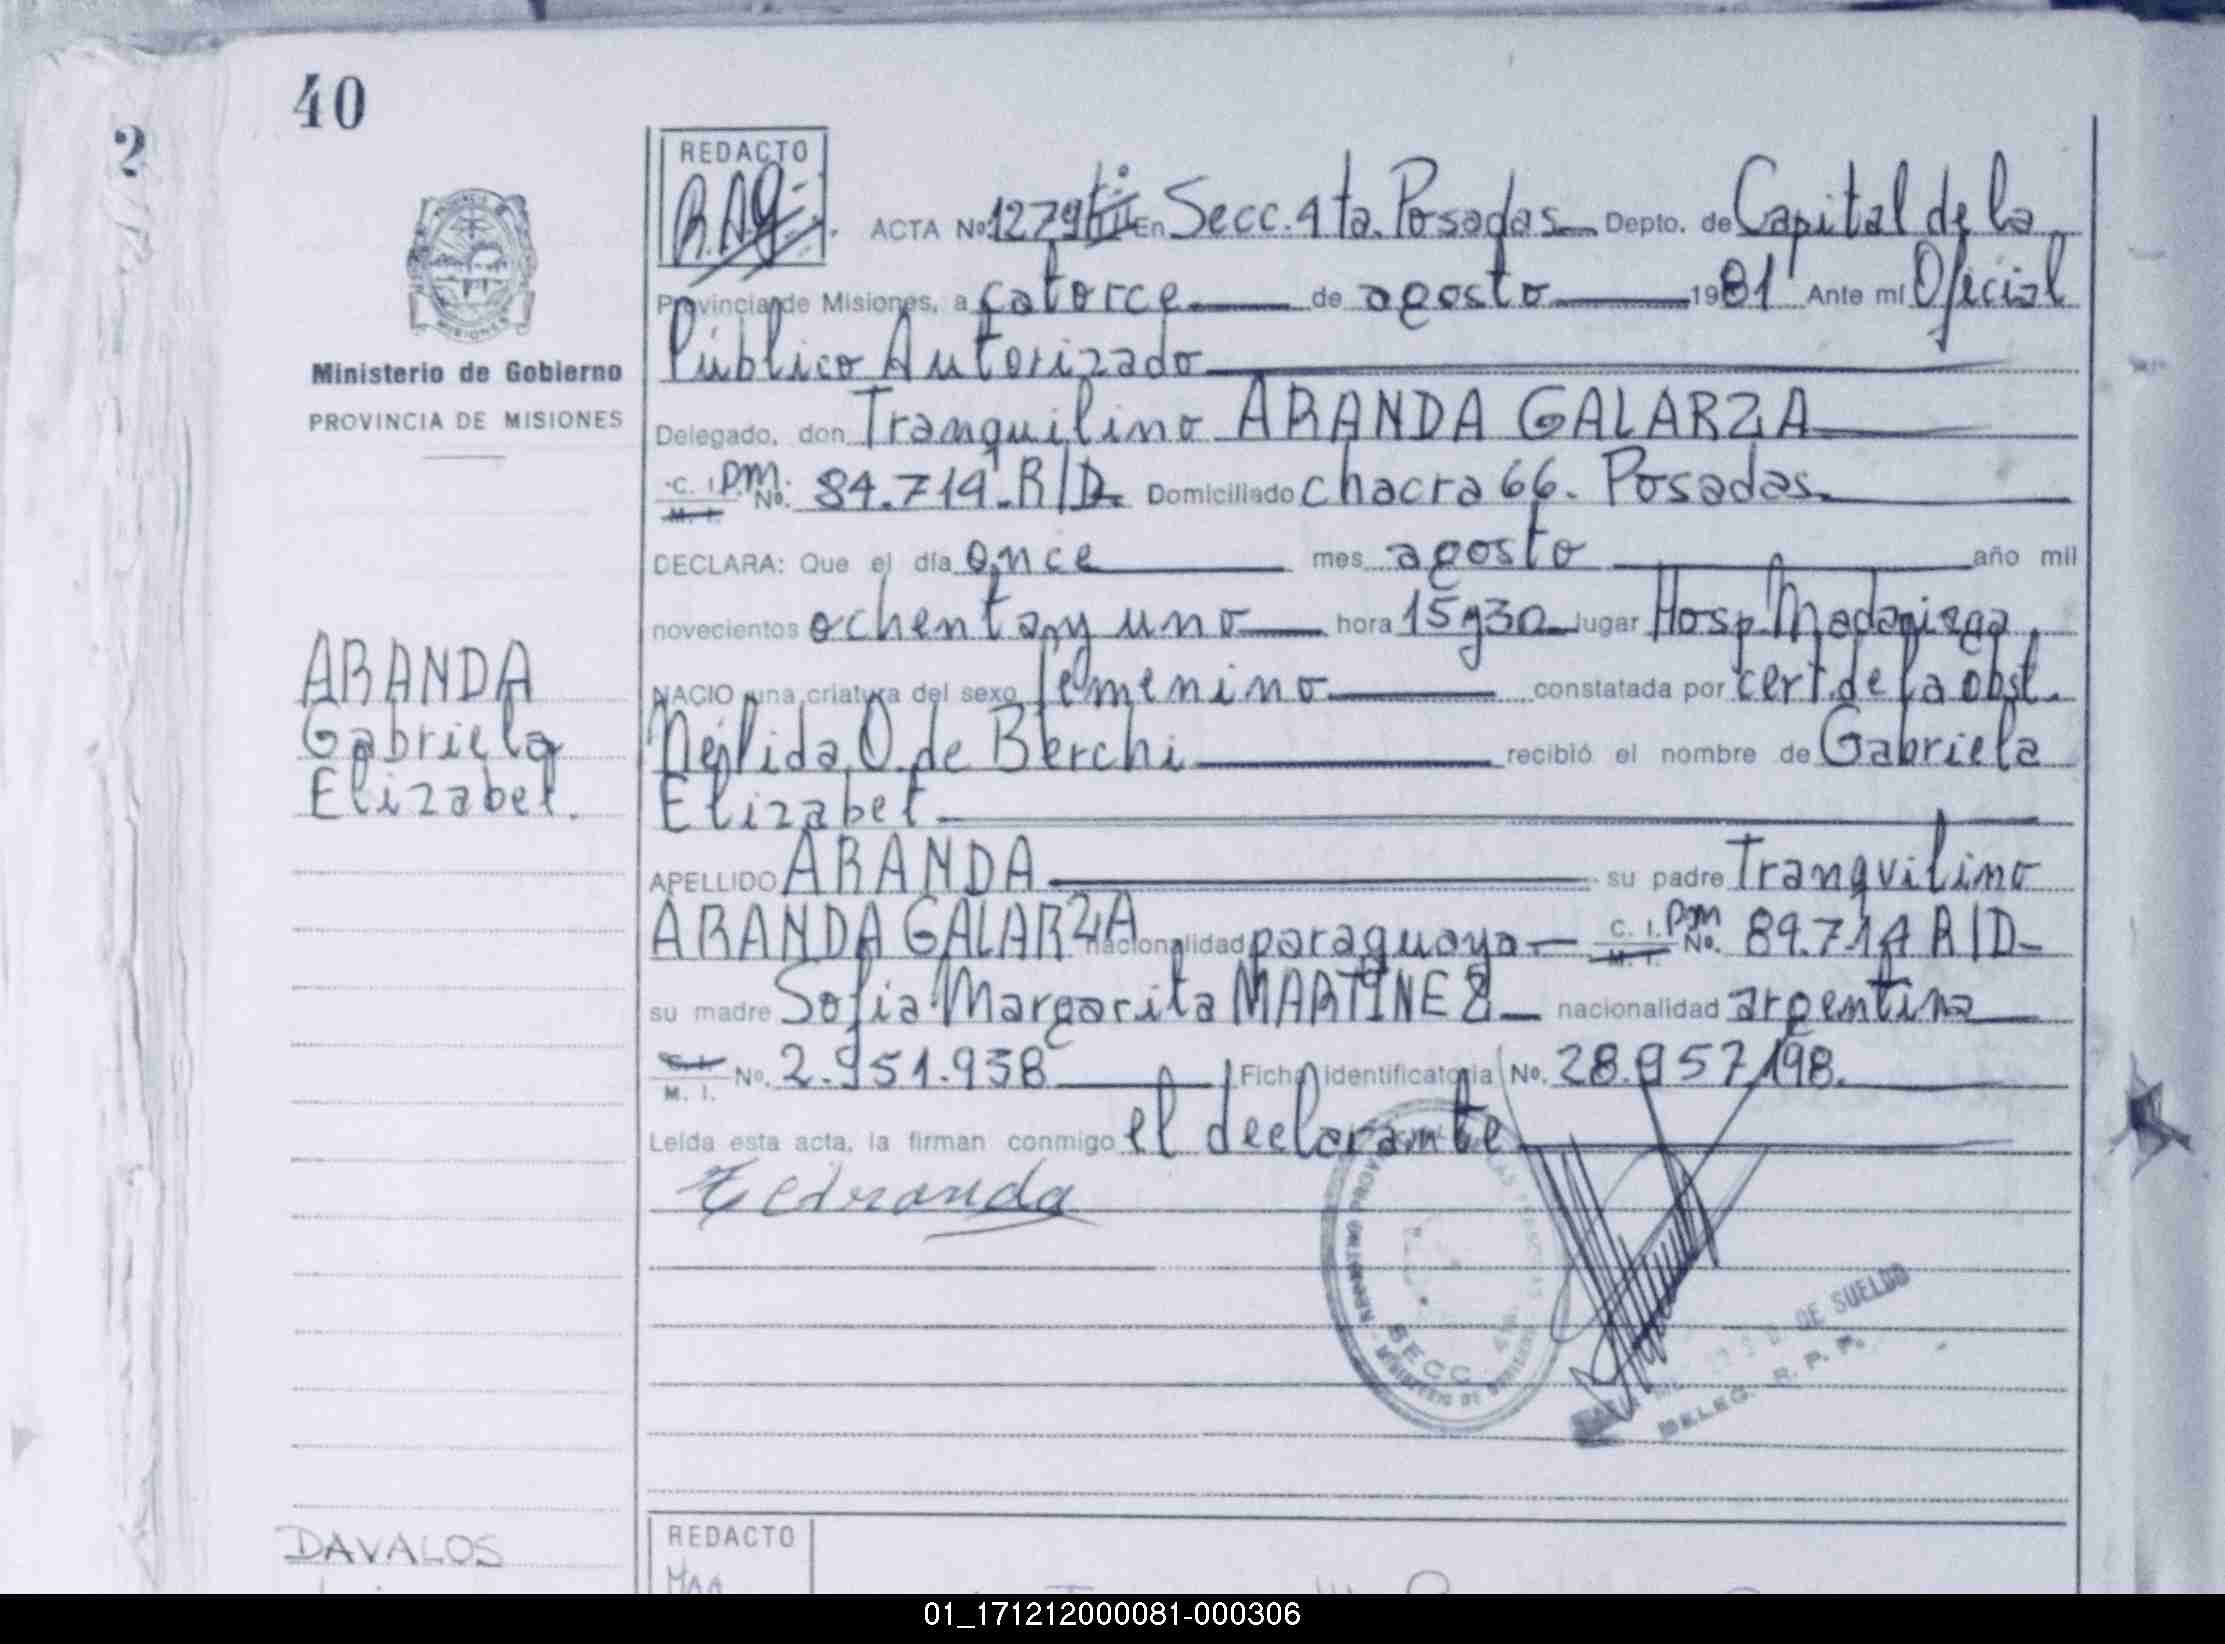 40
2
REDACTO
R.A.G.
ACTA Nº 1279 tº II En Secc. 4ta. Posadas Depto. de Capital de la
Provincia de Misiones, a catorce de agosto 1981 Ante mí Oficial
Público Autorizado
Ministerio de Gobierno
PROVINCIA DE MISIONES
Delegado, don Tranquilino ARANDA GALARZA
C. I. P.M. No. 84.714 R/D. Domiciliado chacra 66. Posadas.
M. I.
DECLARA: Que el día once mes agosto año mil
novecientos ochenta y uno hora 15 y 30 lugar Hosp. Madariaga
NACIO una criatura del sexo femenino constatada por cert. de la obst.
Nélida O. de Berchi recibió el nombre de Gabriela
Elizabet
ARANDA
Gabriela
Elizabet.
APELLIDO ARANDA su padre Tranquilino
ARANDA GALARZA nacionalidad paraguaya C. I. P.M. No. 84.714 R/D
M. I.
su madre Sofia Margarita MARTINEZ nacionalidad argentina
C. I. No. 2.951.938 Ficha identificatoria No. 28.957.198.
M. I.
Leída esta acta, la firman conmigo el declarante
SECC. 4ta
DE SUELDO
DELEG. R. P. P.
DAVALOS
REDACTO
01_171212000081-000306